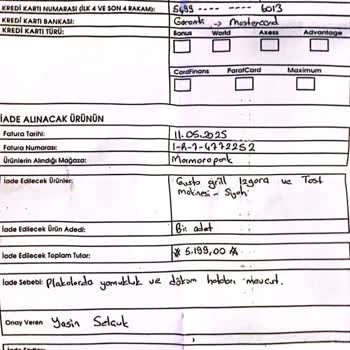 KREDİ KARTI NUMARASI (İLK 4 VE SON 4 RAKAM): 5499 ---- ---- 6013
KREDİ KARTI BANKASI: Garanti -> Mastercard
KREDİ KARTI TÜRÜ: Bonus World Axess Advantage
CardFinans ParafCard Maximum
İADE ALINACAK ÜRÜNÜN
Fatura Tarihi: 11.05.2025
Fatura Numarası: 1-A-7-4772252
Ürünlerin Alındığı Mağaza: Marmarapark
İade Edilecek Ürünler: Gusto grill Izgara ve Tost
makinesi - Siyah
İade Edilecek Ürün Adedi: Bir adet
İade Edilecek Toplam Tutar: # 5.199,00 #
İade Sebebi: Plakalarda yamukluk ve döküm hataları mevcut.
Onay Veren Yasin Selçuk